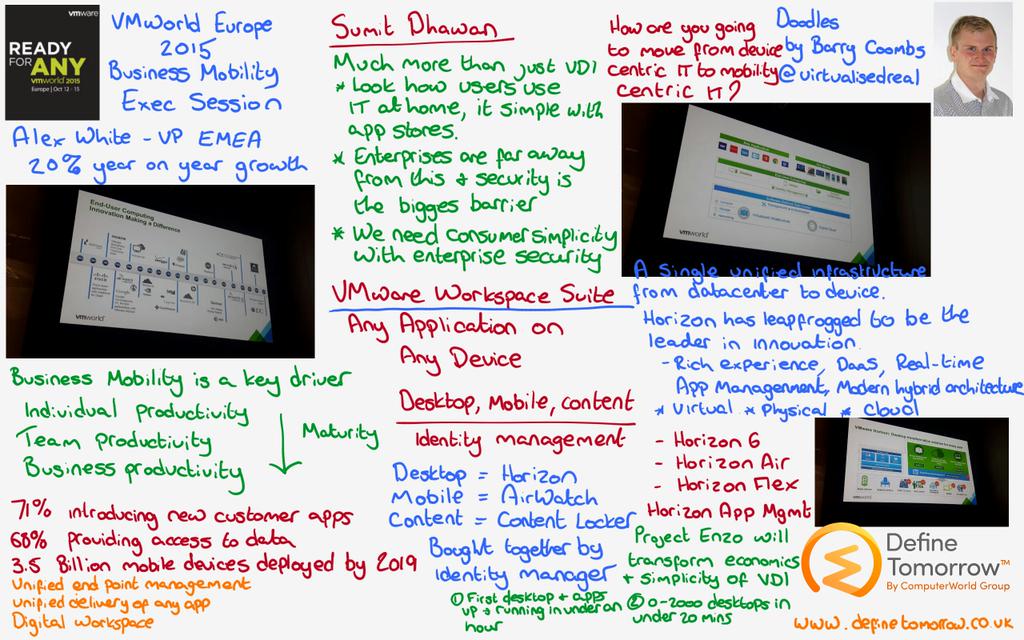 vmware
READY
FOR ANY
vmworld 2015
Europe | Oct 12 - 15
VMworld Europe
2015
Business Mobility
Exec Session
Alex White - VP EMEA
20% year on year growth
End-User Computing
Innovation Making a Difference
vmworld
Business Mobility is a key driver
Individual productivity
Team productivity
Business productivity
Maturity
71% introducing new customer apps
68% providing access to data
3.5 Billion mobile devices deployed by 2019
Unified end point management
unified delivery of any app
Digital Workspace
Sumit Dhawan
Much more than just VDI
* Look how users use
IT at home, it simple with
app stores.
* Enterprises are far away
from this + security is
the bigges barrier
* We need consumer simplicity
with enterprise security
VMware Workspace Suite
Any Application on
Any Device
Desktop, Mobile, content
Identity management
Desktop = Horizon
Mobile = AirWatch
Content = Content Locker
Bought together by
Identity manager
① First desktop + apps
up + running in under an
hour
② 0-2000 desktops in
under 20 mins
How are you going
to move from device
centric IT to mobility
centric IT?
Doodles
by Barry Coombs
@virtualisedreal
vmworld
A single unified infrastructure
from datacenter to device.
Horizon has leapfrogged to be the
leader in innovation.
- Rich experience, DaaS, Real-time
App Management, Modern hybrid architecture
* Virtual * Physical * Cloud
- Horizon 6
- Horizon Air
- Horizon Flex
Horizon App Mgmt
vmworld
Project Enzo will
transform economics
+ simplicity of VDI
Define
Tomorrow™
By ComputerWorld Group
www.definetomorrow.co.uk